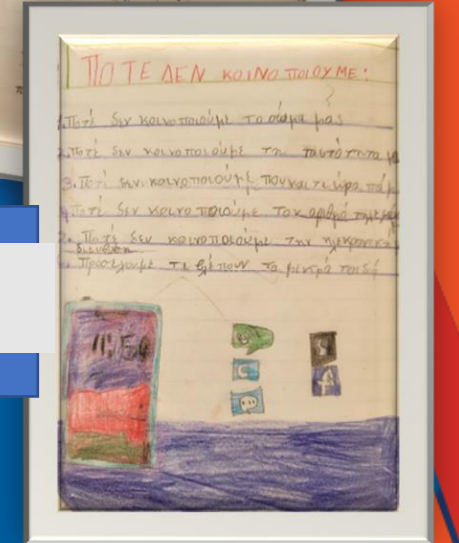 ΠΟΤΕ ΔΕΝ ΚΟΙΝΟΠΟΙΟΥΜΕ:
1. Ποτέ δεν κοινοποιούμε το σώμα μας
2. Ποτέ δεν κοινοποιούμε την ταυτότητα
3. Ποτέ δεν κοινοποιούμε που και τι ώρα πάμ
4. Ποτέ δεν κοινοποιούμε τον αριθμό τηλεφ
5. Ποτέ δεν κοινοποιούμε την ηλεκτρονικ
διευθυση
Προσέχουμε τι βλέπουν τα μικρά παιδιά